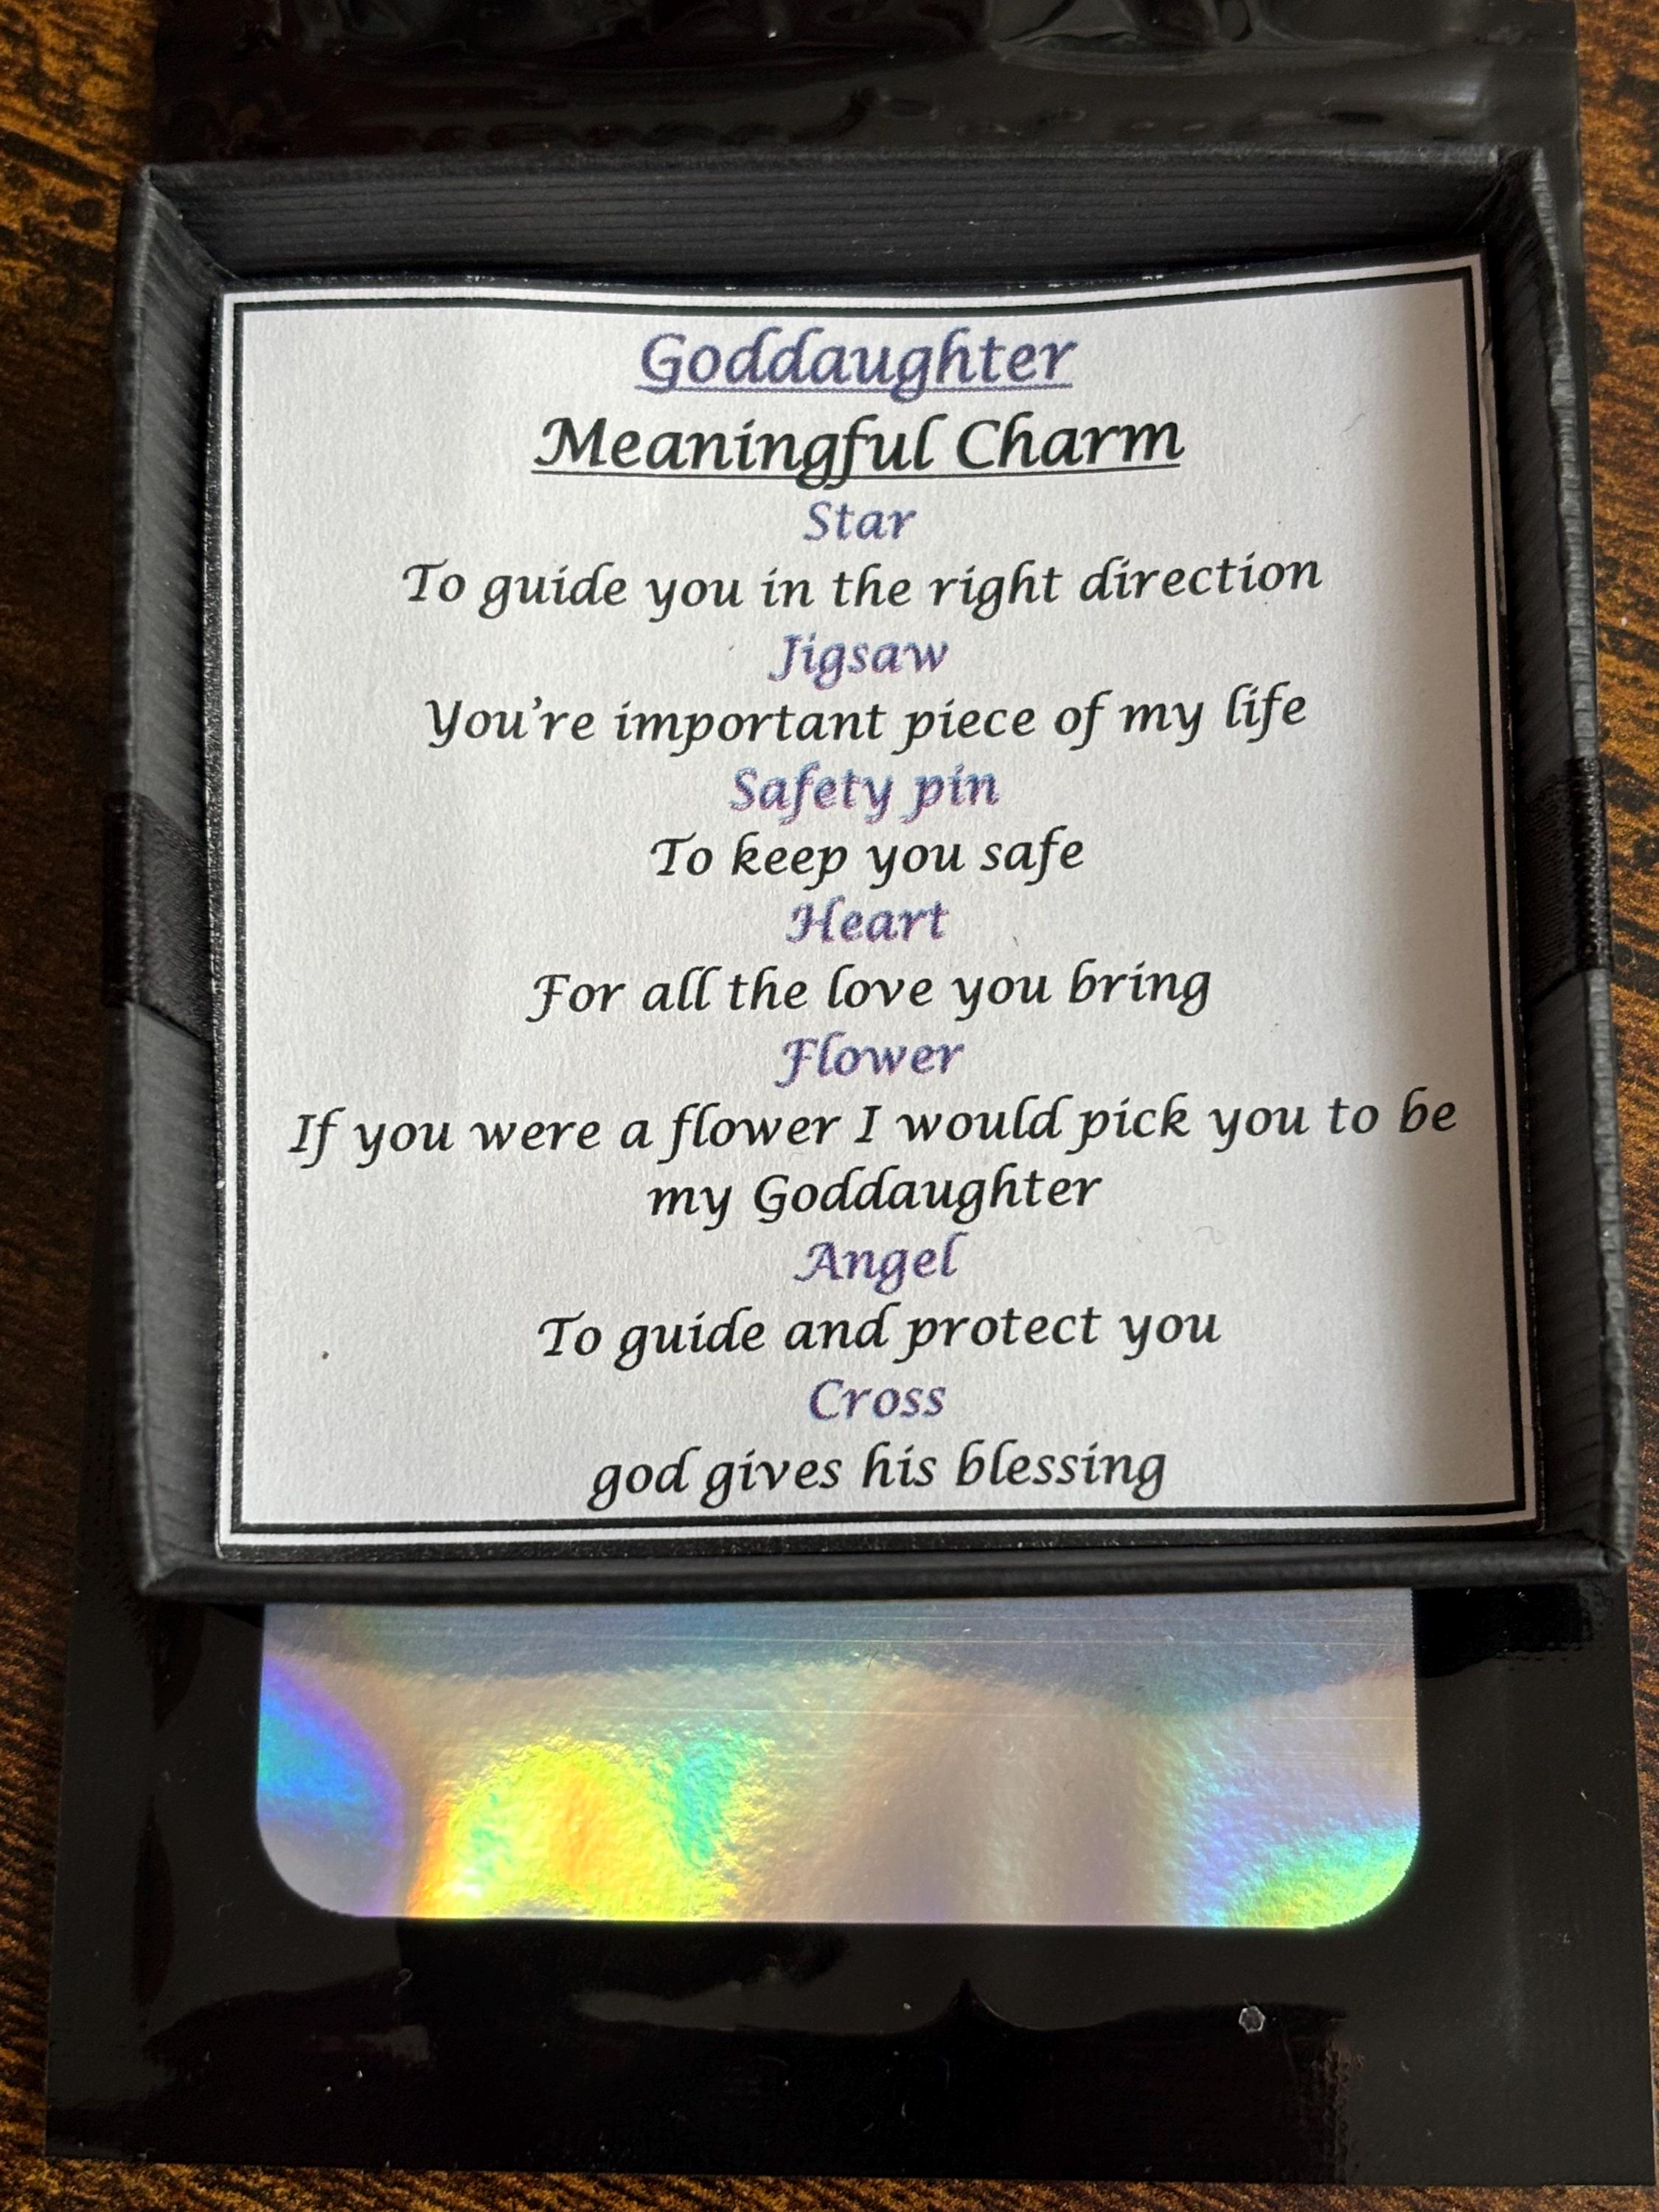 Goddaughter
Meaningful Charm
Star
To guide you in the right direction
Jigsaw
You're important piece of my life
Safety pin
To keep you safe
Heart
For all the love you bring
Flower
If you were a flower I would pick you to be
my Goddaughter
Angel
To guide and protect you
Cross
god gives his blessing